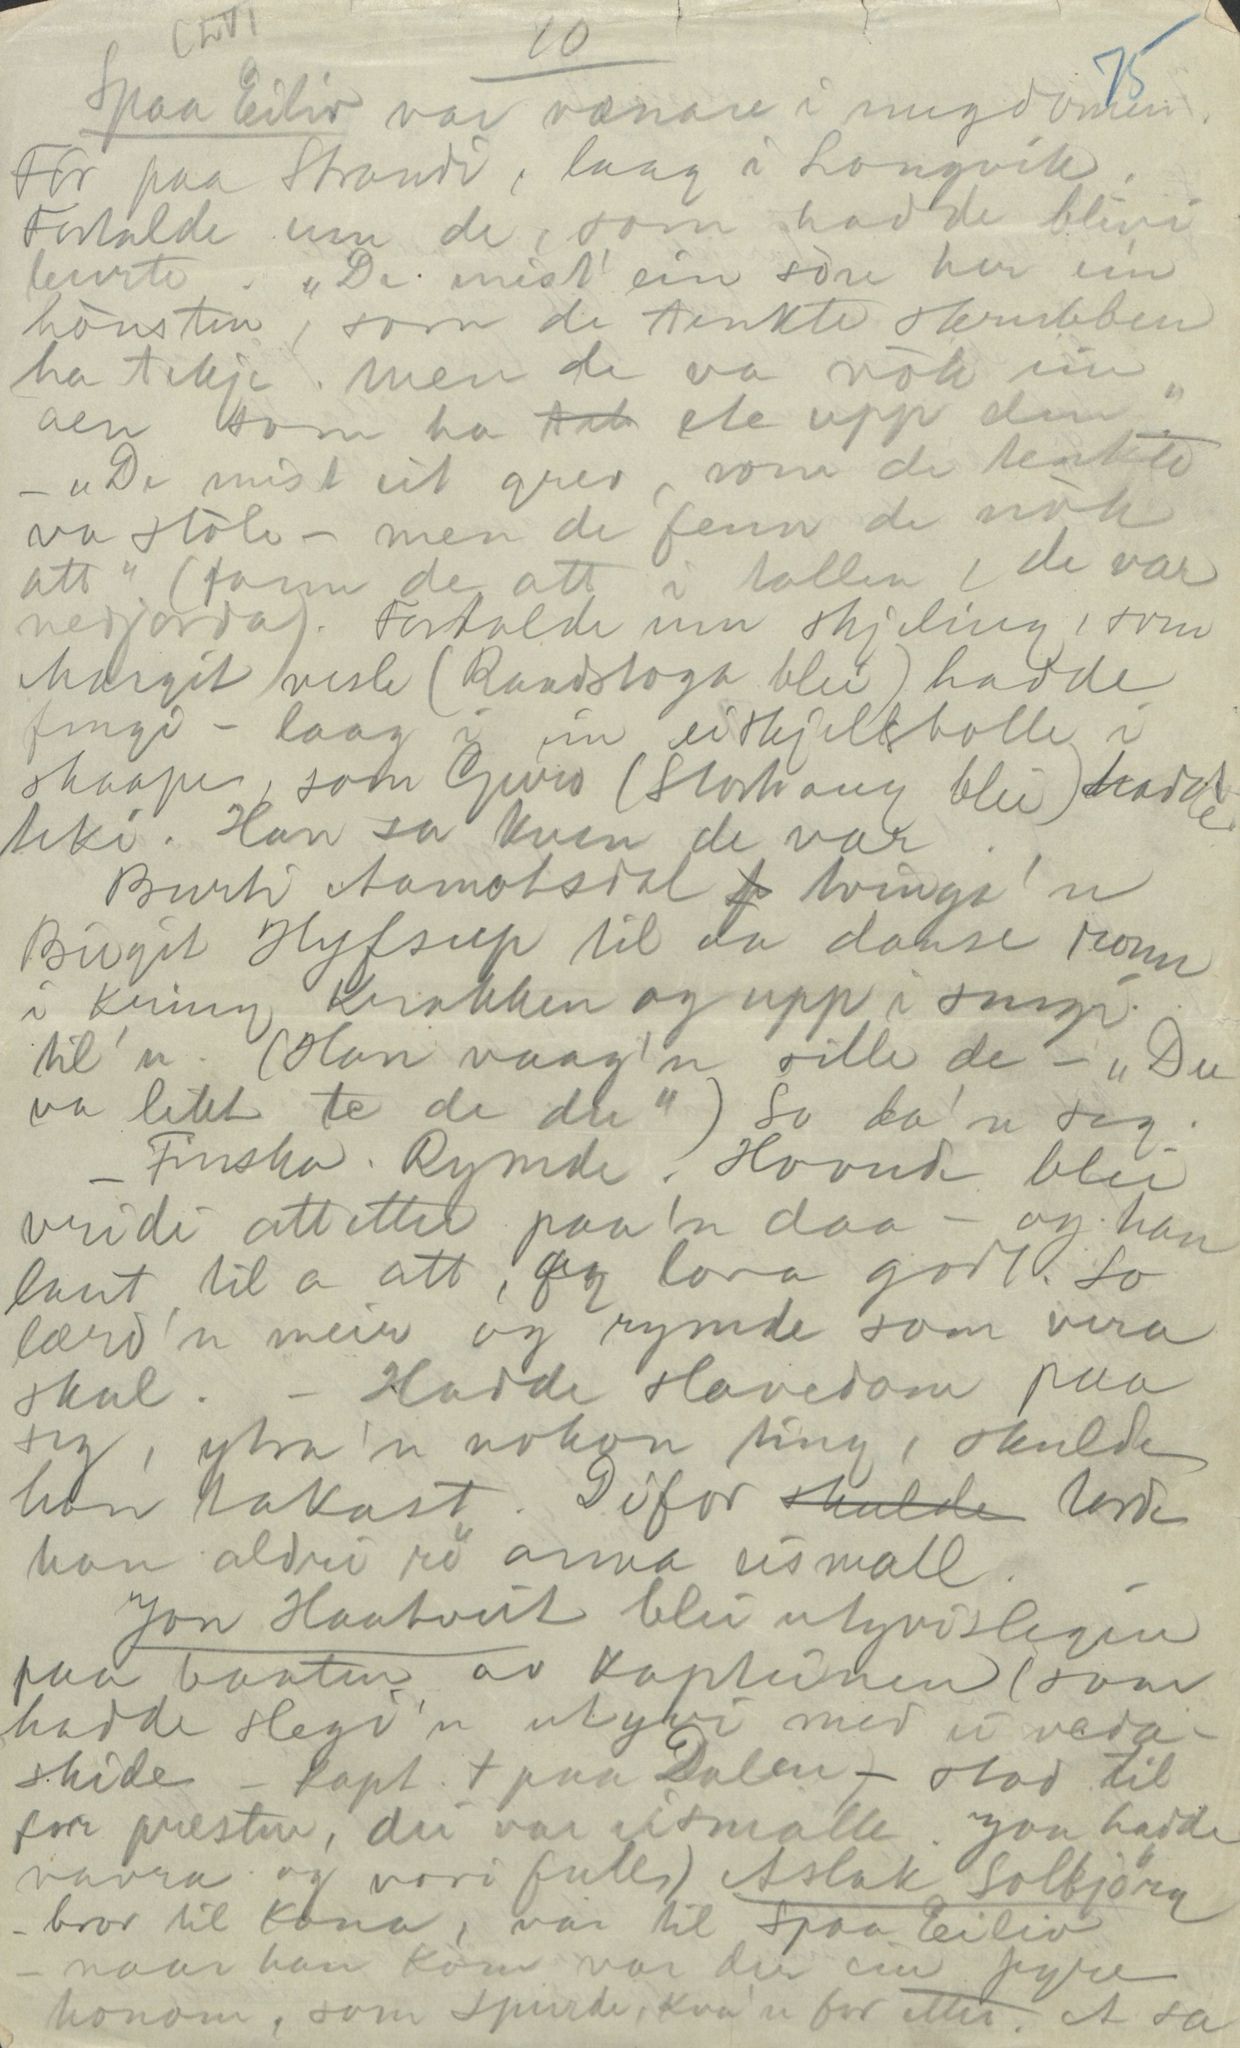 10
75
Spaa Eiliv var vænare i ungdomen.
För paa Strandi, laag i Longvik.
Fortalde um de, som hadde blivi
burte. "De mist' ein söre her ein
hausten, som de tenkte skrubben
ha tekje. Men de va nök ein
aen som ha tek ete upp den"
- "De mist eit grev, som de tenkte
va stöle - men de fenn de nök
att" (fann de att i tollen, de var
nedjorda). Fortalde um skjeling, som
Margit vesle (Raudstoga blei) hadde
fingi - laag i ein eiskjeltbolle i
skaape, som Gjuro (Storhaug blei) hadde
teki. Han sa kven de var.
Burti Aamotsdal tvinga'n
Birgit Hyfseep til aa danse romm
i kring krakken og upp i
til'n. (Han vaag'n sille de - "Du
va lett te de du") So ta'n seg.
- Finska. Rymde. Hovude blei
vridi attetter paa'n daa - og han
laut til a att, og lova godt. So
lærd'n meir og rymde som vera
skul. - Hadde slavedom paa
seg, ytra'n nokon ting, skulde
han takast. Difor skulde torde
han aldri rö anna eismall.
Jon Haatveit blei utyvislegin
paa baaten av kapteinen (som
hadde slegi'n utyvi med ei veda-
skide - kapt. + paa Dalen - stod til
for presten, dei var eismalle. Jon hadde
vavra og vori fulle) Aslak Solbjörg
- bror til kona, var til Spaa Eiliv
- naar han kom var der ein fyre
honom, som spurde, kva'n for etter. A sa